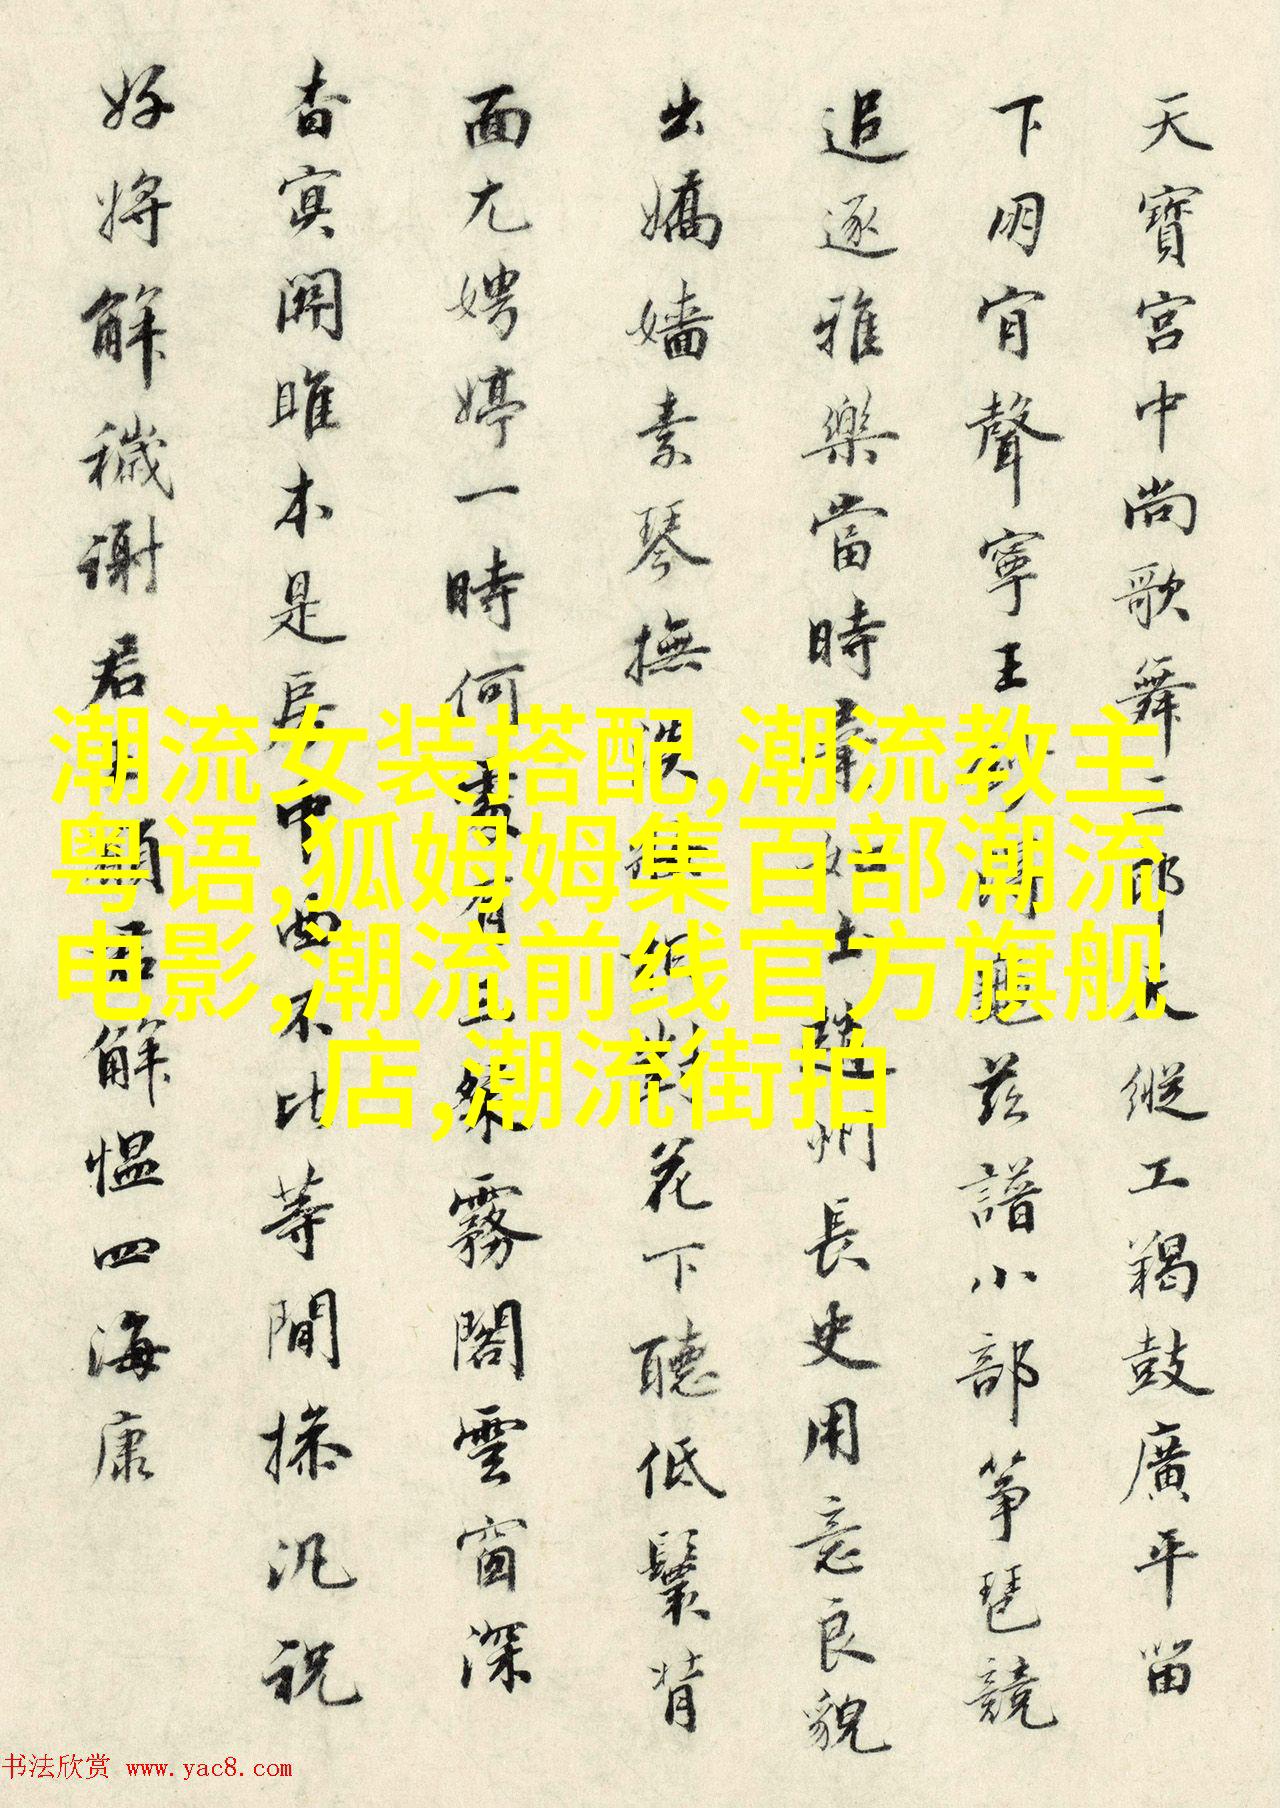 天寶宮中尚歌舞郎天縱工羯鼓廣平
下明聲寧王聽茲譜小部箏琵競
追逐雅樂當時趙州長史用意良貌
出嬌嬙素琴撫對花下聽低鬟背
面尤娉婷一時何處有霧閣雲窗深
杳冥關雎本是房中曲不比等閒操汎祝
好將解穢謝君願君解慍四海康
潮流女装搭配,潮流教主
粤语,狐姆姆集百部潮流
电影,潮流前线官方旗舰
店,潮流街拍
书法欣赏 www.yac8.com